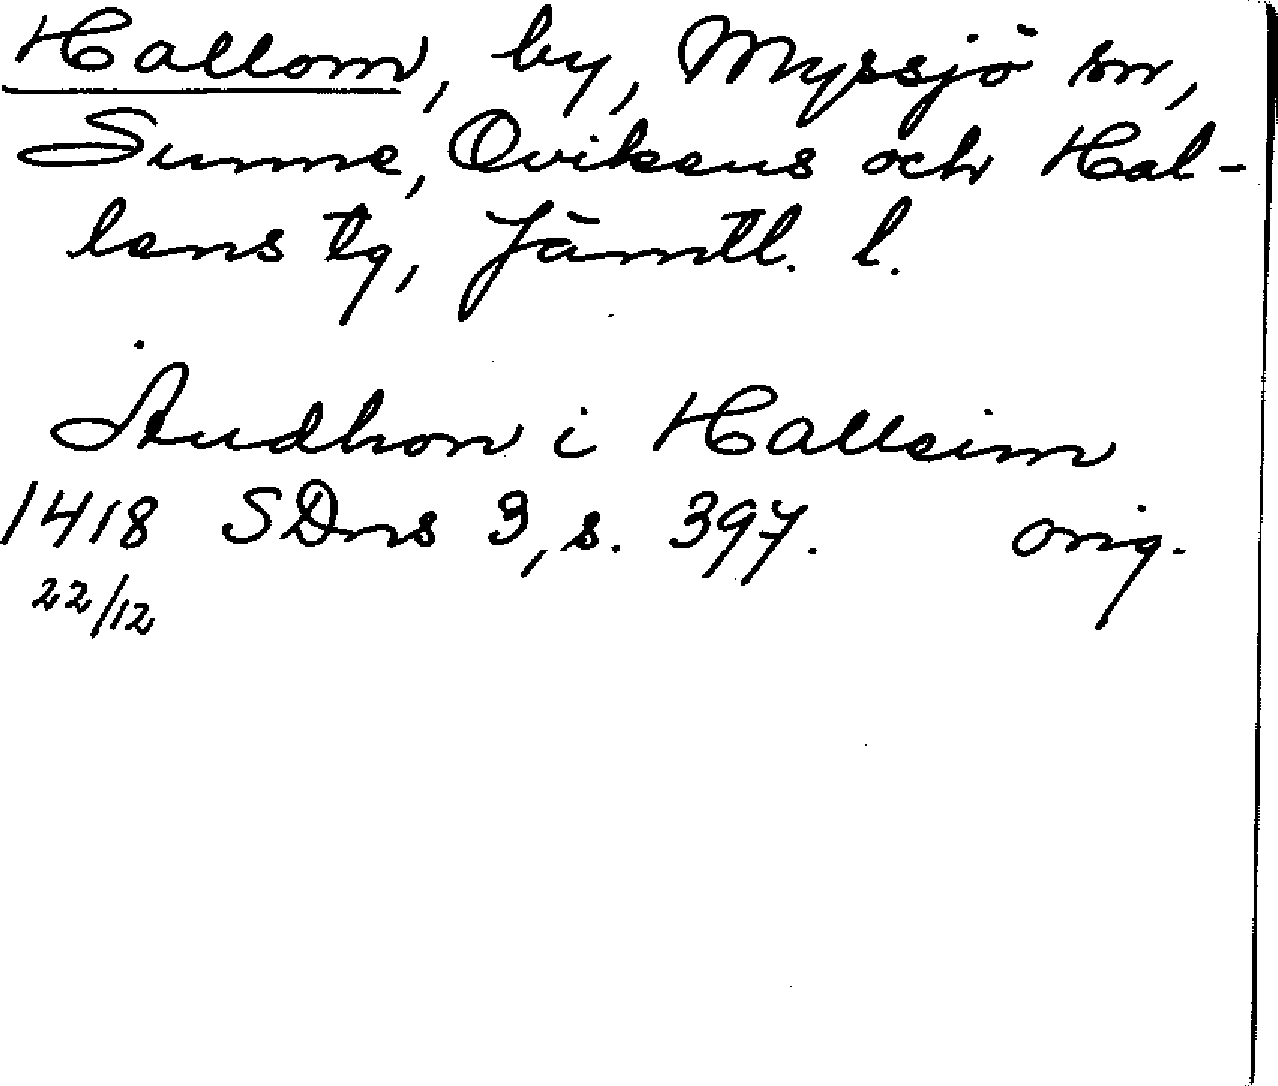 Hallom, by, Myssjö sn,
Sunne, Ovikens och Hal-
lens tg, Jämtl. l.
Audhon i Halleim
1418 SDns 3, s. 397. orig.
22/12